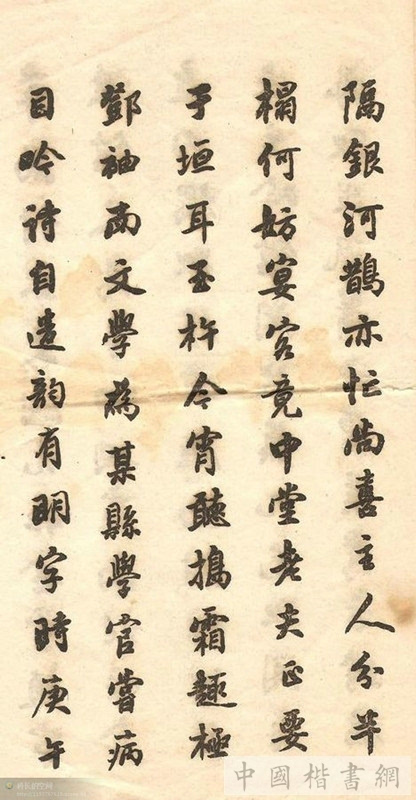 隔銀河鵲亦忙尚喜主人分半
榻何妨宴客竟中堂老夫正要
于垣耳玉杵今宵聽搗霜趣極
鄧袖文學為某縣學官嘗病
目吟詩自遣韵有明字時庚午
中國楷書網